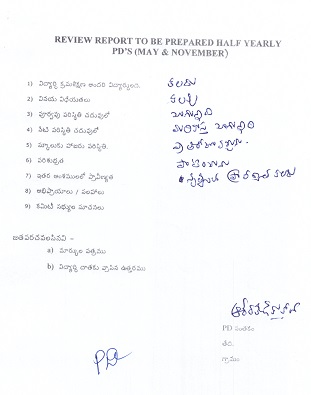 REVIEW REPORT TO BE PREPARED HALF YEARLY
PD'S (MAY & NOVEMBER)
1) విద్యార్థి క్రమశిక్షణ అందరి విద్యార్థులకు. కలదు
2) వినయ విధేయతలు కలవు
3) పూర్వపు పరిస్థితి చదువులో బాగున్నది
4) నేటి పరిస్థితి చదువులో బాగున్నది
5) స్కూలుకు హాజరు పరిస్థితి.
6) పరిశుభ్రత
7) ఇతర అంశములలో ప్రావీణ్యత కలదు
8) అభిప్రాయాలు / సలహాలు
9) కమిటీ సభ్యుల సూచనలు
జతపరచవలసినవి -
a) మార్కుల పత్రము
b) విద్యార్థి దాతకు వ్రాసిన ఉత్తరము
PD సంతకం
తేది.
గ్రామం
PD